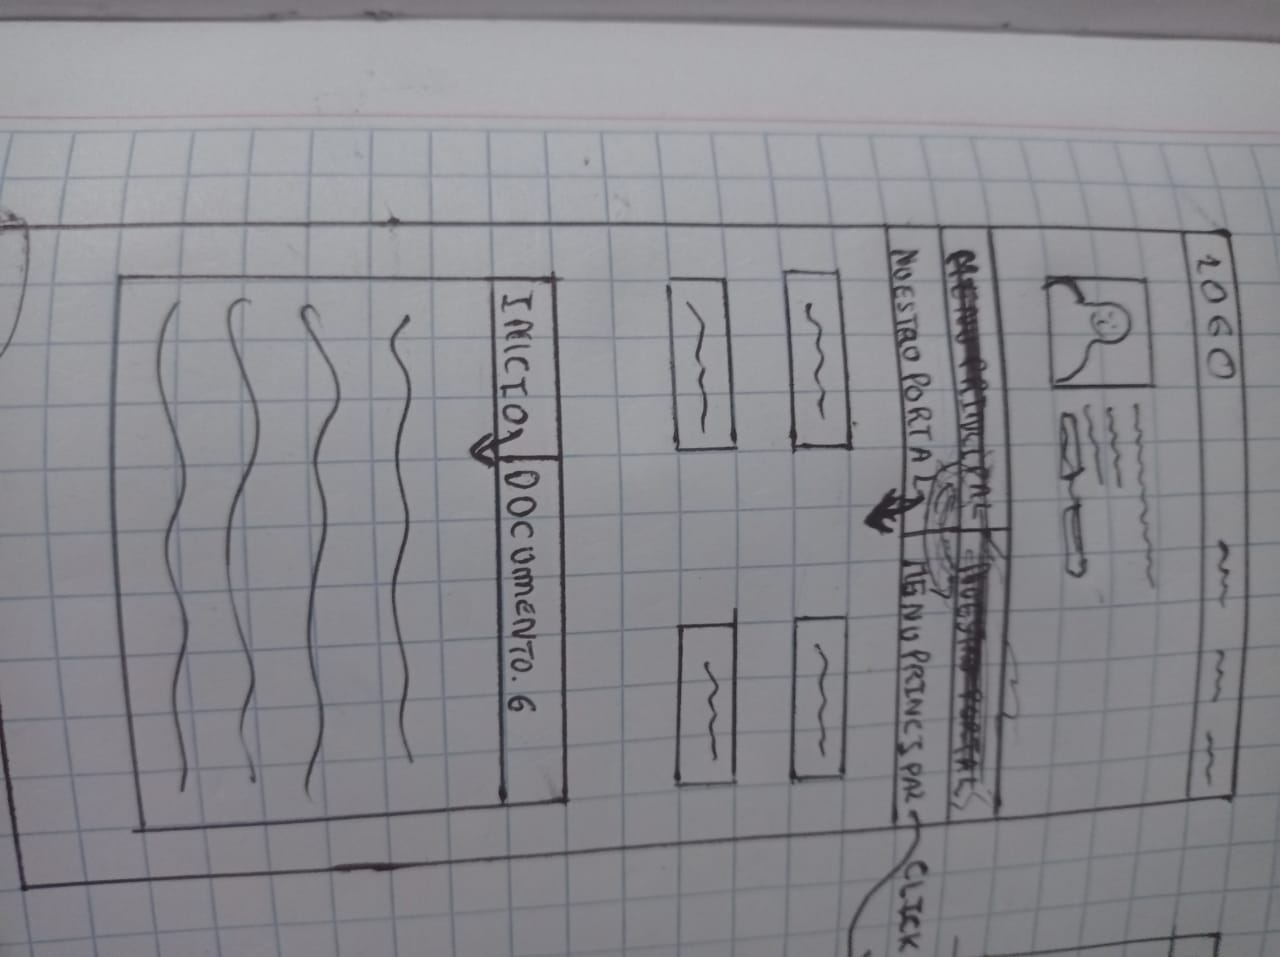 LOGO
MENU PRINCIPAL NUESTRO PORTAL
NUESTRO PORTAL MENU PRINCIPAL CLICK
INICIO DOCUMENTO. G